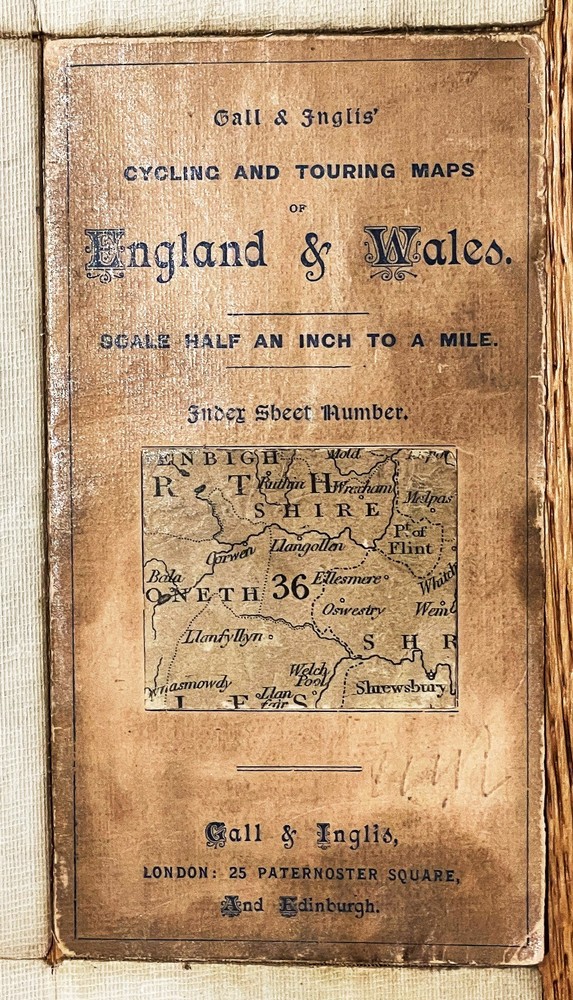 Gall & Inglis'
CYCLING AND TOURING MAPS
OF
England & Wales.
SCALE HALF AN INCH TO A MILE.
Index Sheet Number.
ENBIGH
Mold
R T H
Ruthin
Wrexham
Malpas
SHIRE
Pt. of
Flint
Corwen
Llangollen
Bala
ONETH
36
Ellesmere
Whitch
Oswestry
Wem
Llanfyllyn
S H R
Welch
Pool
Shrewsbury
nasmowdy
Llan
fair
L E S
Gall & Inglis,
LONDON: 25 PATERNOSTER SQUARE,
And Edinburgh.